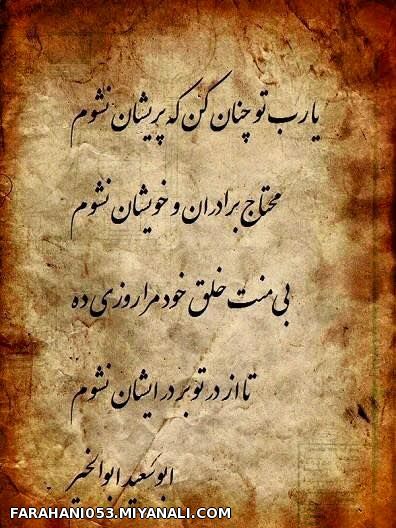 یا رب تو چنان کن که پریشان نشوم
محتاج برادران و خویشان نشوم
بی منت خلق خود مرا روزی ده
تا از در تو بر در ایشان نشوم
ابوسعید ابوالخیر
FARAHANI053.MIYANALI.COM